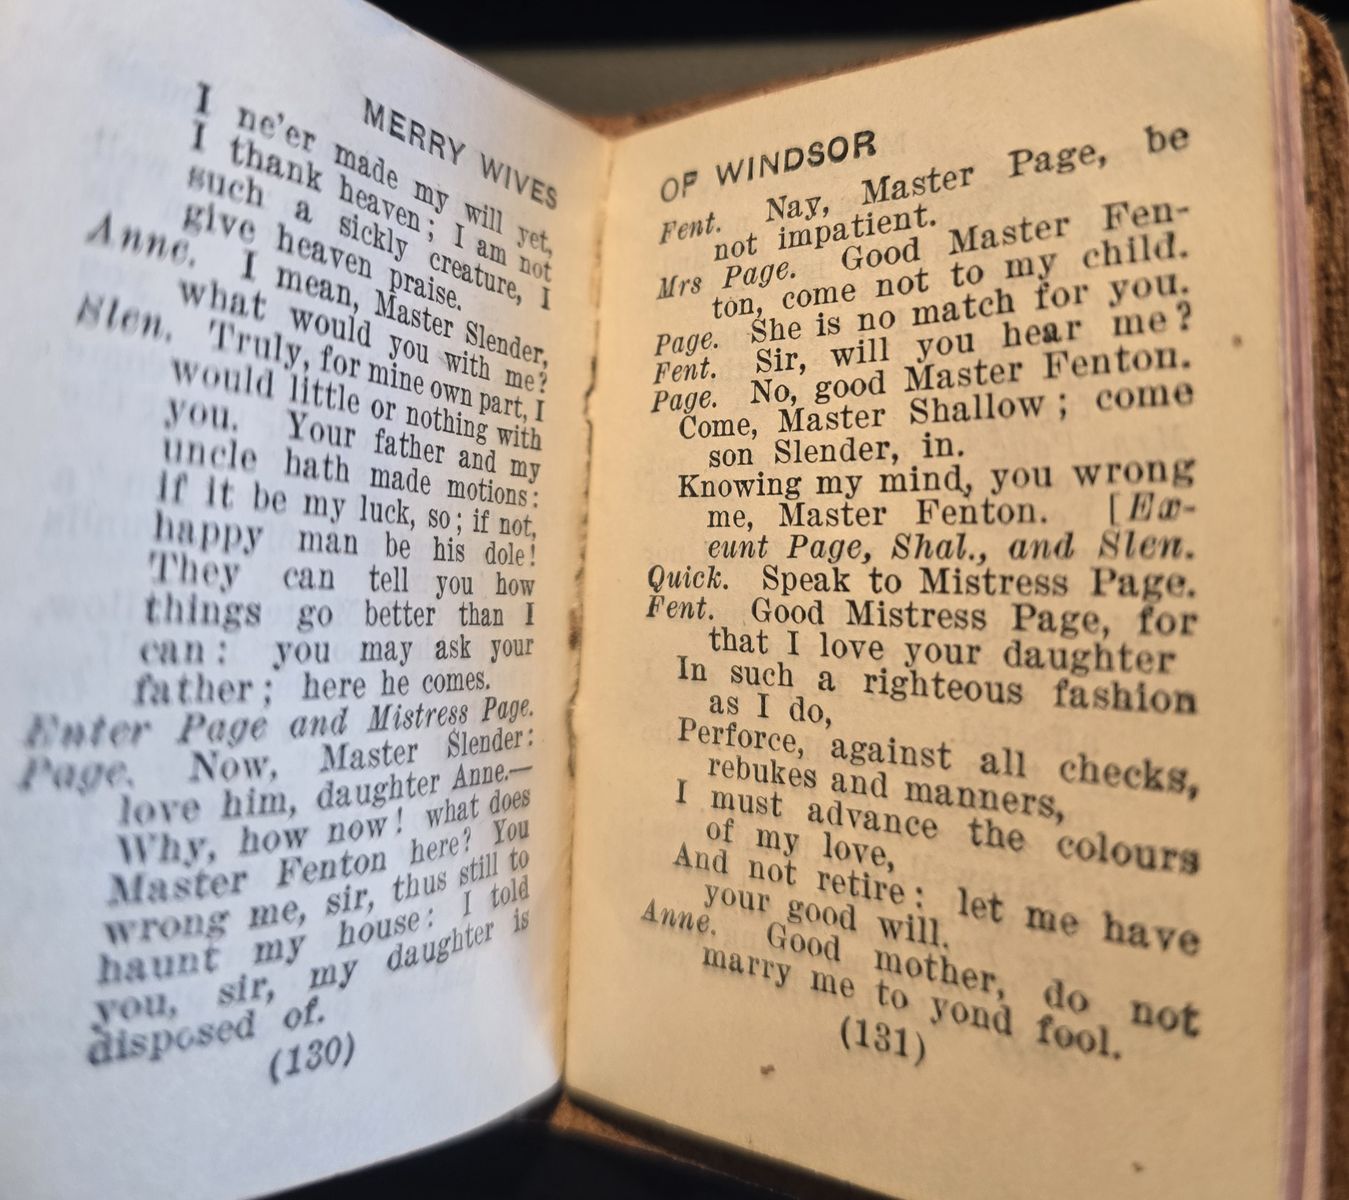 MERRY WIVES
I ne'er made my will yet,
I thank heaven; I am not
such a sickly creature, I
give heaven praise.
Anne. I mean, Master Slender,
what would you with me?
Slen. Truly, for mine own part, I
would little or nothing with
you. Your father and my
uncle hath made motions:
if it be my luck, so; if not,
happy man be his dole!
They can tell you how
things go better than I
can: you may ask your
father; here he comes.
Enter Page and Mistress Page.
Page. Now, Master Slender:
love him, daughter Anne.—
Why, how now! what does
Master Fenton here? You
wrong me, sir, thus still to
haunt my house: I told
you, sir, my daughter is
disposed of.
(130)
OF WINDSOR
Fent. Nay, Master Page, be
not impatient.
Mrs Page. Good Master Fen-
ton, come not to my child.
Page. She is no match for you.
Fent. Sir, will you hear me?
Page. No, good Master Fenton.
Come, Master Shallow; come
son Slender, in.
Knowing my mind, you wrong
me, Master Fenton. [Ex-
eunt Page, Shal., and Slen.
Quick. Speak to Mistress Page.
Fent. Good Mistress Page, for
that I love your daughter
In such a righteous fashion
as I do,
Perforce, against all checks,
rebukes and manners,
I must advance the colours
of my love,
And not retire: let me have
your good will.
Anne. Good mother, do not
marry me to yond fool.
(131)